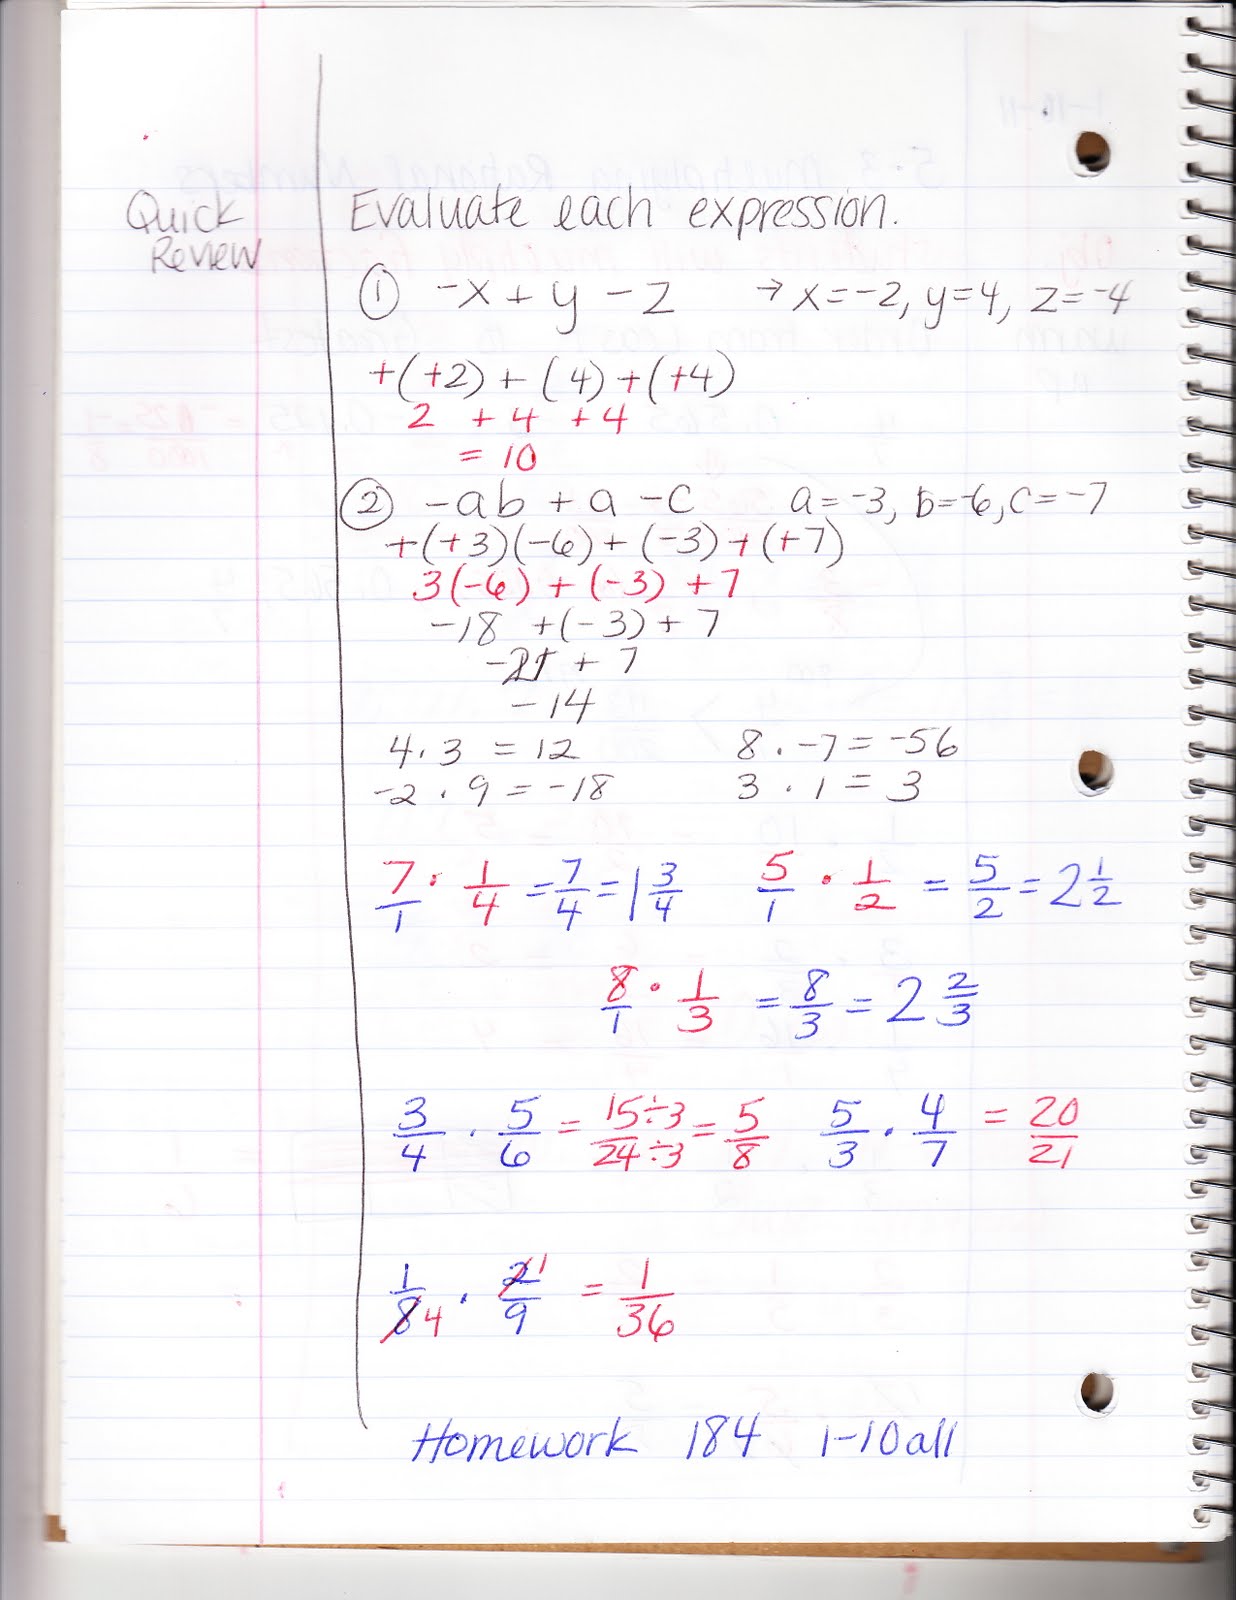 Quick
Review
Evaluate each expression.
① -x + y - z → x=-2, y=4, z=-4
+(+2) + (4) + (+4)
2 + 4 + 4
= 10
② -ab + a - c a=-3, b=-6, c=-7
+(+3)(-6) + (-3) + (+7)
3(-6) + (-3) + 7
-18 + (-3) + 7
-21 + 7
-14
4 · 3 = 12 8 · -7 = -56
-2 · 9 = -18 3 · 1 = 3
7/1 · 1/4 = 7/4 = 1 3/4 5/1 · 1/2 = 5/2 = 2 1/2
8/1 · 1/3 = 8/3 = 2 2/3
3/4 · 5/6 = 15÷3/24÷3 = 5/8 5/3 · 4/7 = 20/21
1/8 4 · 2 1/9 = 1/36
Homework 184 1-10 all